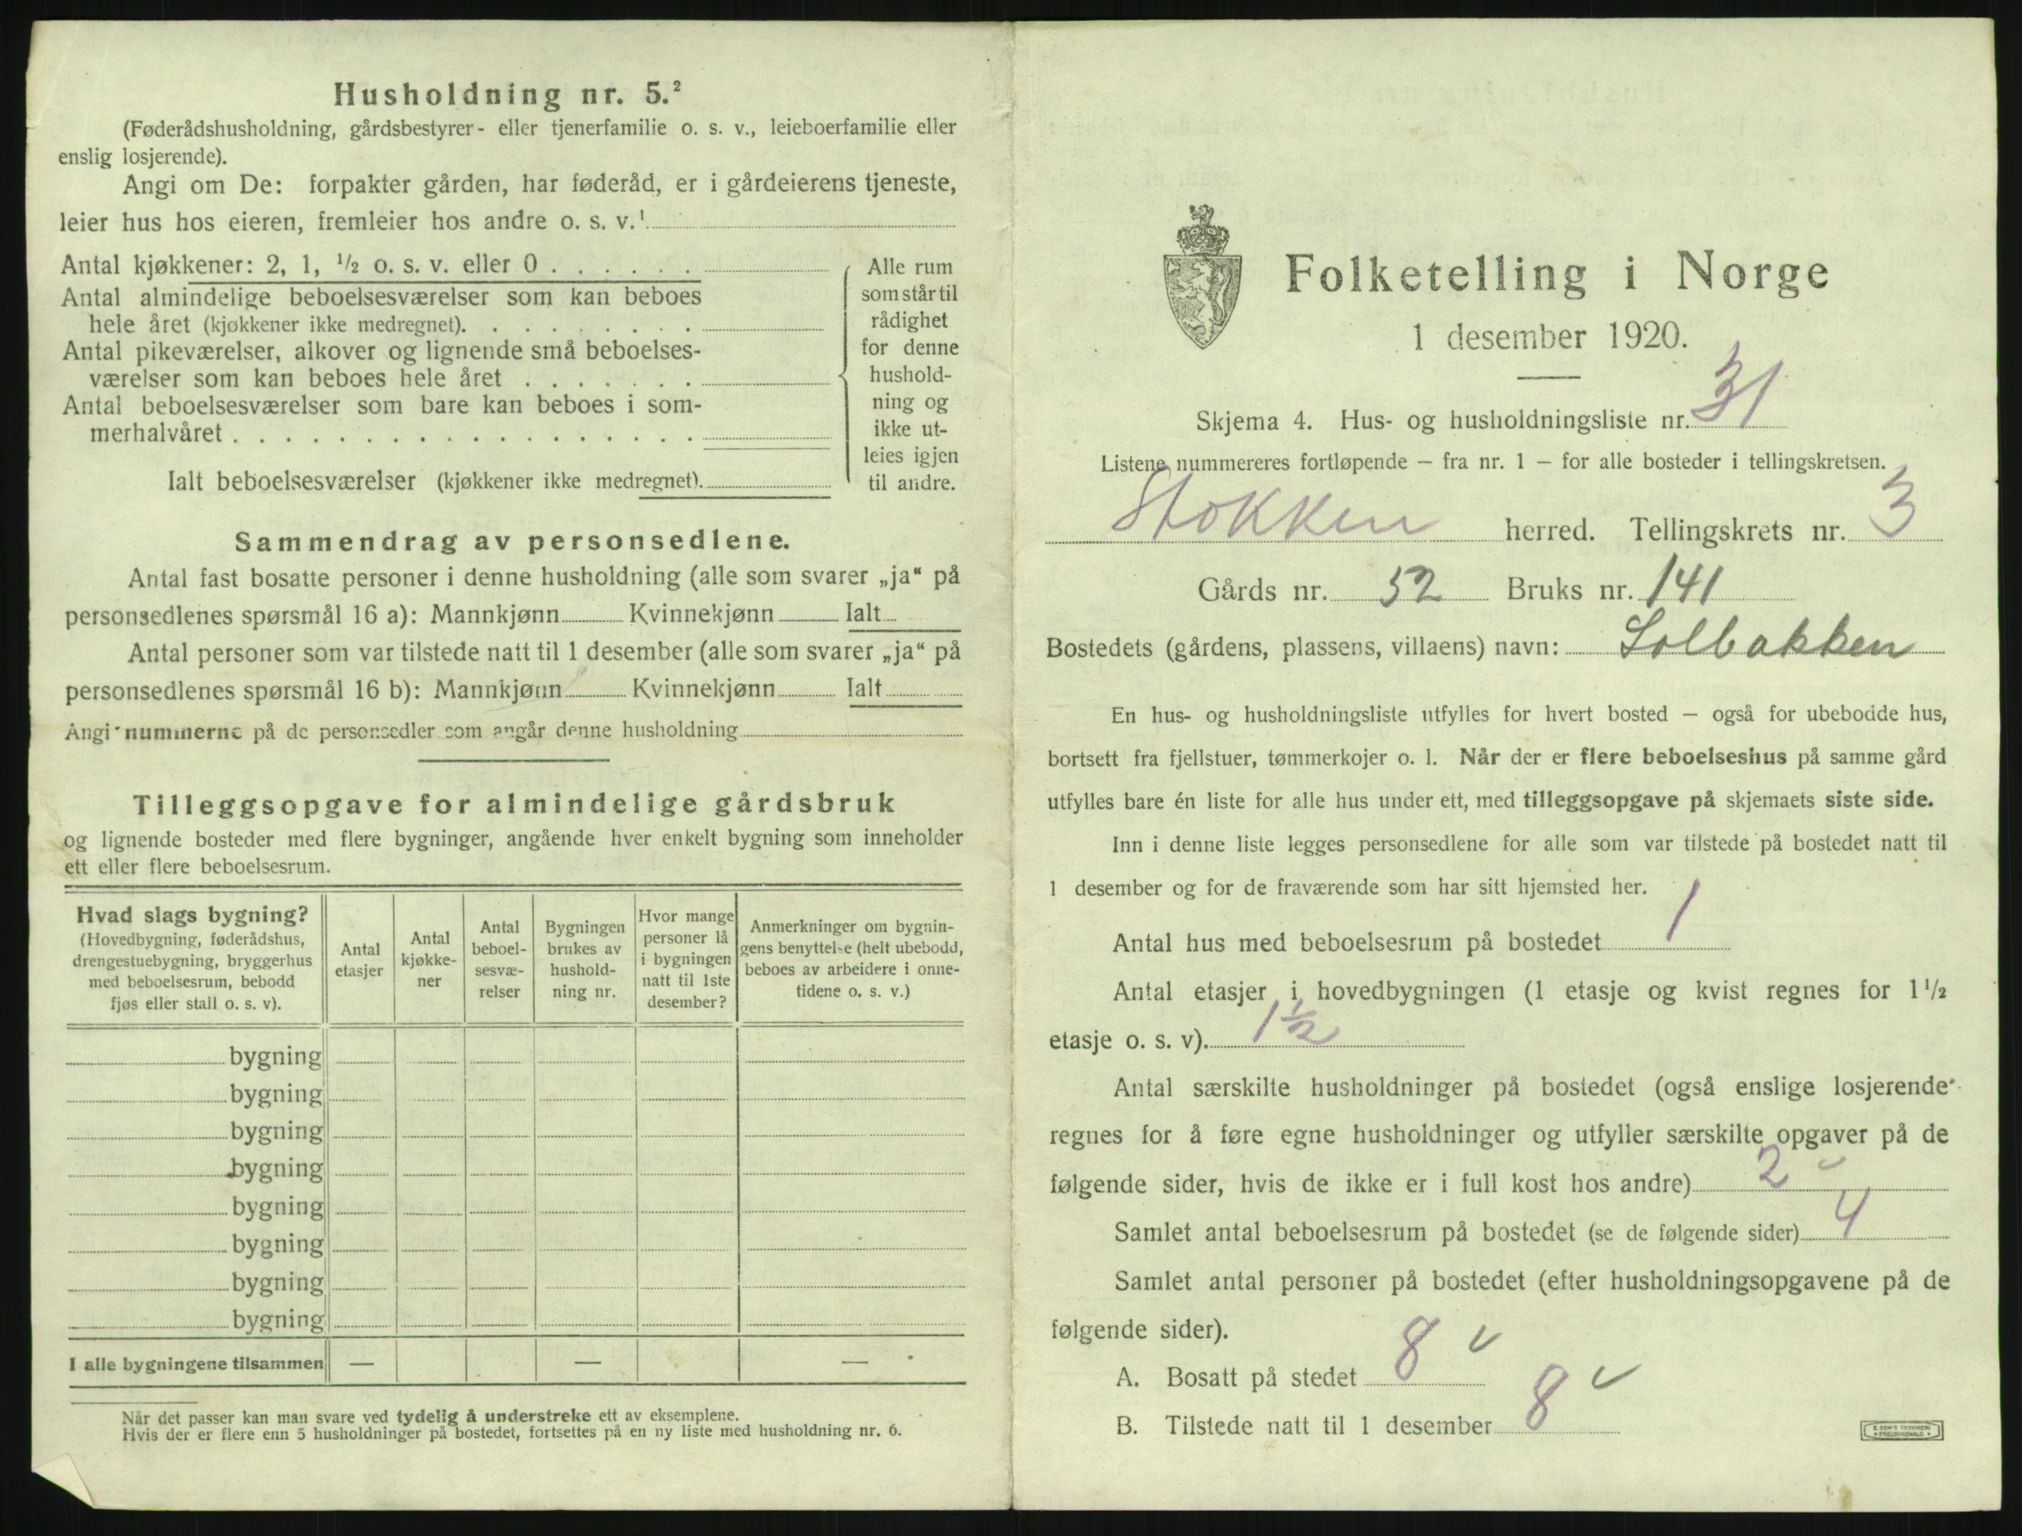 Husholdning nr. 5.²
(Føderådshusholdning, gårdsbestyrer- eller tjenerfamilie o. s. v., leieboerfamilie eller
enslig losjerende).
Angi om De: forpakter gården, har føderåd, er i gårdeierens tjeneste,
leier hus hos eieren, fremleier hos andre o. s. v.¹
Antal kjøkkener: 2, 1, ½ o. s. v. eller 0 . . . . . .
Antal almindelige beboelsesværelser som kan beboes
hele året (kjøkkener ikke medregnet). . . . . . . . .
Antal pikeværelser, alkover og lignende små beboelses-
værelser som kan beboes hele året . . . . . . .
Antal beboelsesværelser som bare kan beboes i som-
merhalvåret . . . . . . . . . . . . . . . . . .
Ialt beboelsesværelser (kjøkkener ikke medregnet).
Alle rum
som står til
rådighet
for denne
hushold-
ning og
ikke ut-
leies igjen
til andre.
Sammendrag av personsedlene.
Antal fast bosatte personer i denne husholdning (alle som svarer „ja“ på
personsedlenes spørsmål 16 a): Mannkjønn Kvinnekjønn Ialt
Antal personer som var tilstede natt til 1 desember (alle som svarer „ja“ på
personsedlenes spørsmål 16 b): Mannkjønn Kvinnekjønn Ialt
Angi nummerne på de personsedler som angår denne husholdning
Tilleggsopgave for almindelige gårdsbruk
og lignende bosteder med flere bygninger, angående hver enkelt bygning som inneholder
ett eller flere beboelsesrum.
Hvad slags bygning?
(Hovedbygning, føderådshus,
drengestuebygning, bryggerhus
med beboelsesrum, bebodd
fjøs eller stall o. s. v).
Antal
etasjer
Antal
kjøkke-
ner
Antal
beboel-
sesvæ-
relser
Bygningen
brukes av
hushold-
ning nr.
Hvor mange
personer lå
i bygningen
natt til 1ste
desember?
Anmerkninger om bygnin-
gens benyttelse (helt ubebodd,
beboes av arbeidere i onne-
tidene o. s. v.)
bygning
bygning
bygning
bygning
bygning
bygning
bygning
bygning
I alle bygningene tilsammen — — —
Når det passer kan man svare ved tydelig å understreke ett av eksemplene.
Hvis der er flere enn 5 husholdninger på bostedet, fortsettes på en ny liste med husholdning nr. 6.
Folketelling i Norge
1 desember 1920.
Skjema 4. Hus- og husholdningsliste nr. 31
Listene nummereres fortløpende – fra nr. 1 – for alle bosteder i tellingskretsen.
Stokken herred. Tellingskrets nr. 3
Gårds nr. 52 Bruks nr. 141
Bostedets (gårdens, plassens, villaens) navn: Solbakken
En hus- og husholdningsliste utfylles for hvert bosted – også for ubebodde hus,
bortsett fra fjellstuer, tømmerkojer o. l. Når der er flere beboelseshus på samme gård
utfylles bare én liste for alle hus under ett, med tilleggsopgave på skjemaets siste side.
Inn i denne liste legges personsedlene for alle som var tilstede på bostedet natt til
1 desember og for de fraværende som har sitt hjemsted her.
Antal hus med beboelsesrum på bostedet 1
Antal etasjer i hovedbygningen (1 etasje og kvist regnes for 1½
etasje o. s. v). 1½
Antal særskilte husholdninger på bostedet (også enslige losjerende
regnes for å føre egne husholdninger og utfyller særskilte opgaver på de
følgende sider, hvis de ikke er i full kost hos andre) 2
Samlet antal beboelsesrum på bostedet (se de følgende sider) 4
Samlet antal personer på bostedet (efter husholdningsopgavene på de
følgende sider).
A. Bosatt på stedet 8
B. Tilstede natt til 1 desember 8